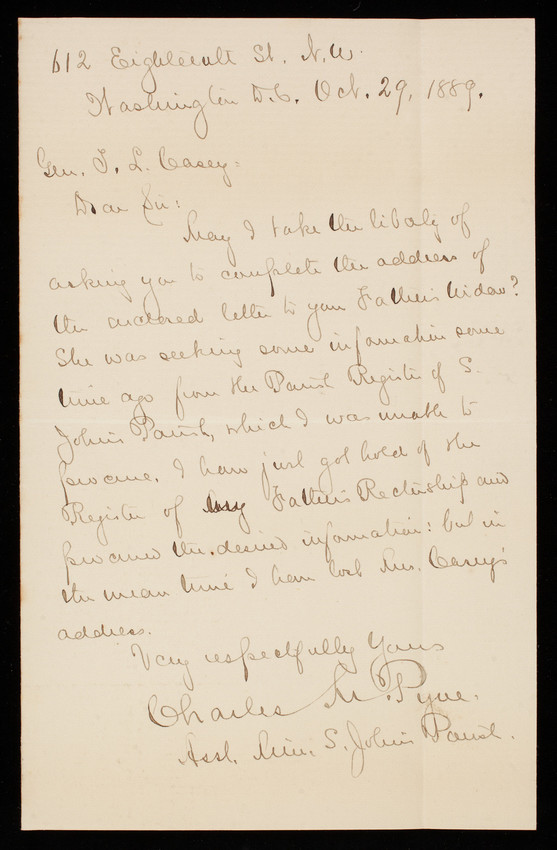 612 Eighteenth St. N.W.
Washington D.C. Oct. 29, 1889.
Gen. T. L. Casey:
Dear Sir:
May I take the liberty of
asking you to complete the address of
the enclosed letter to your Father's widow?
She was seeking some information some
time ago from the Parish Register of S.
John's Parish, which I was unable to
procure. I have just got hold of the
Register of my Father's Rectorship and
procured the desired information: but in
the mean time I have lost Mrs. Casey's
address.
Very respectfully Yours
Charles M. Pyne.
Asst. Min. S. John's Parish.